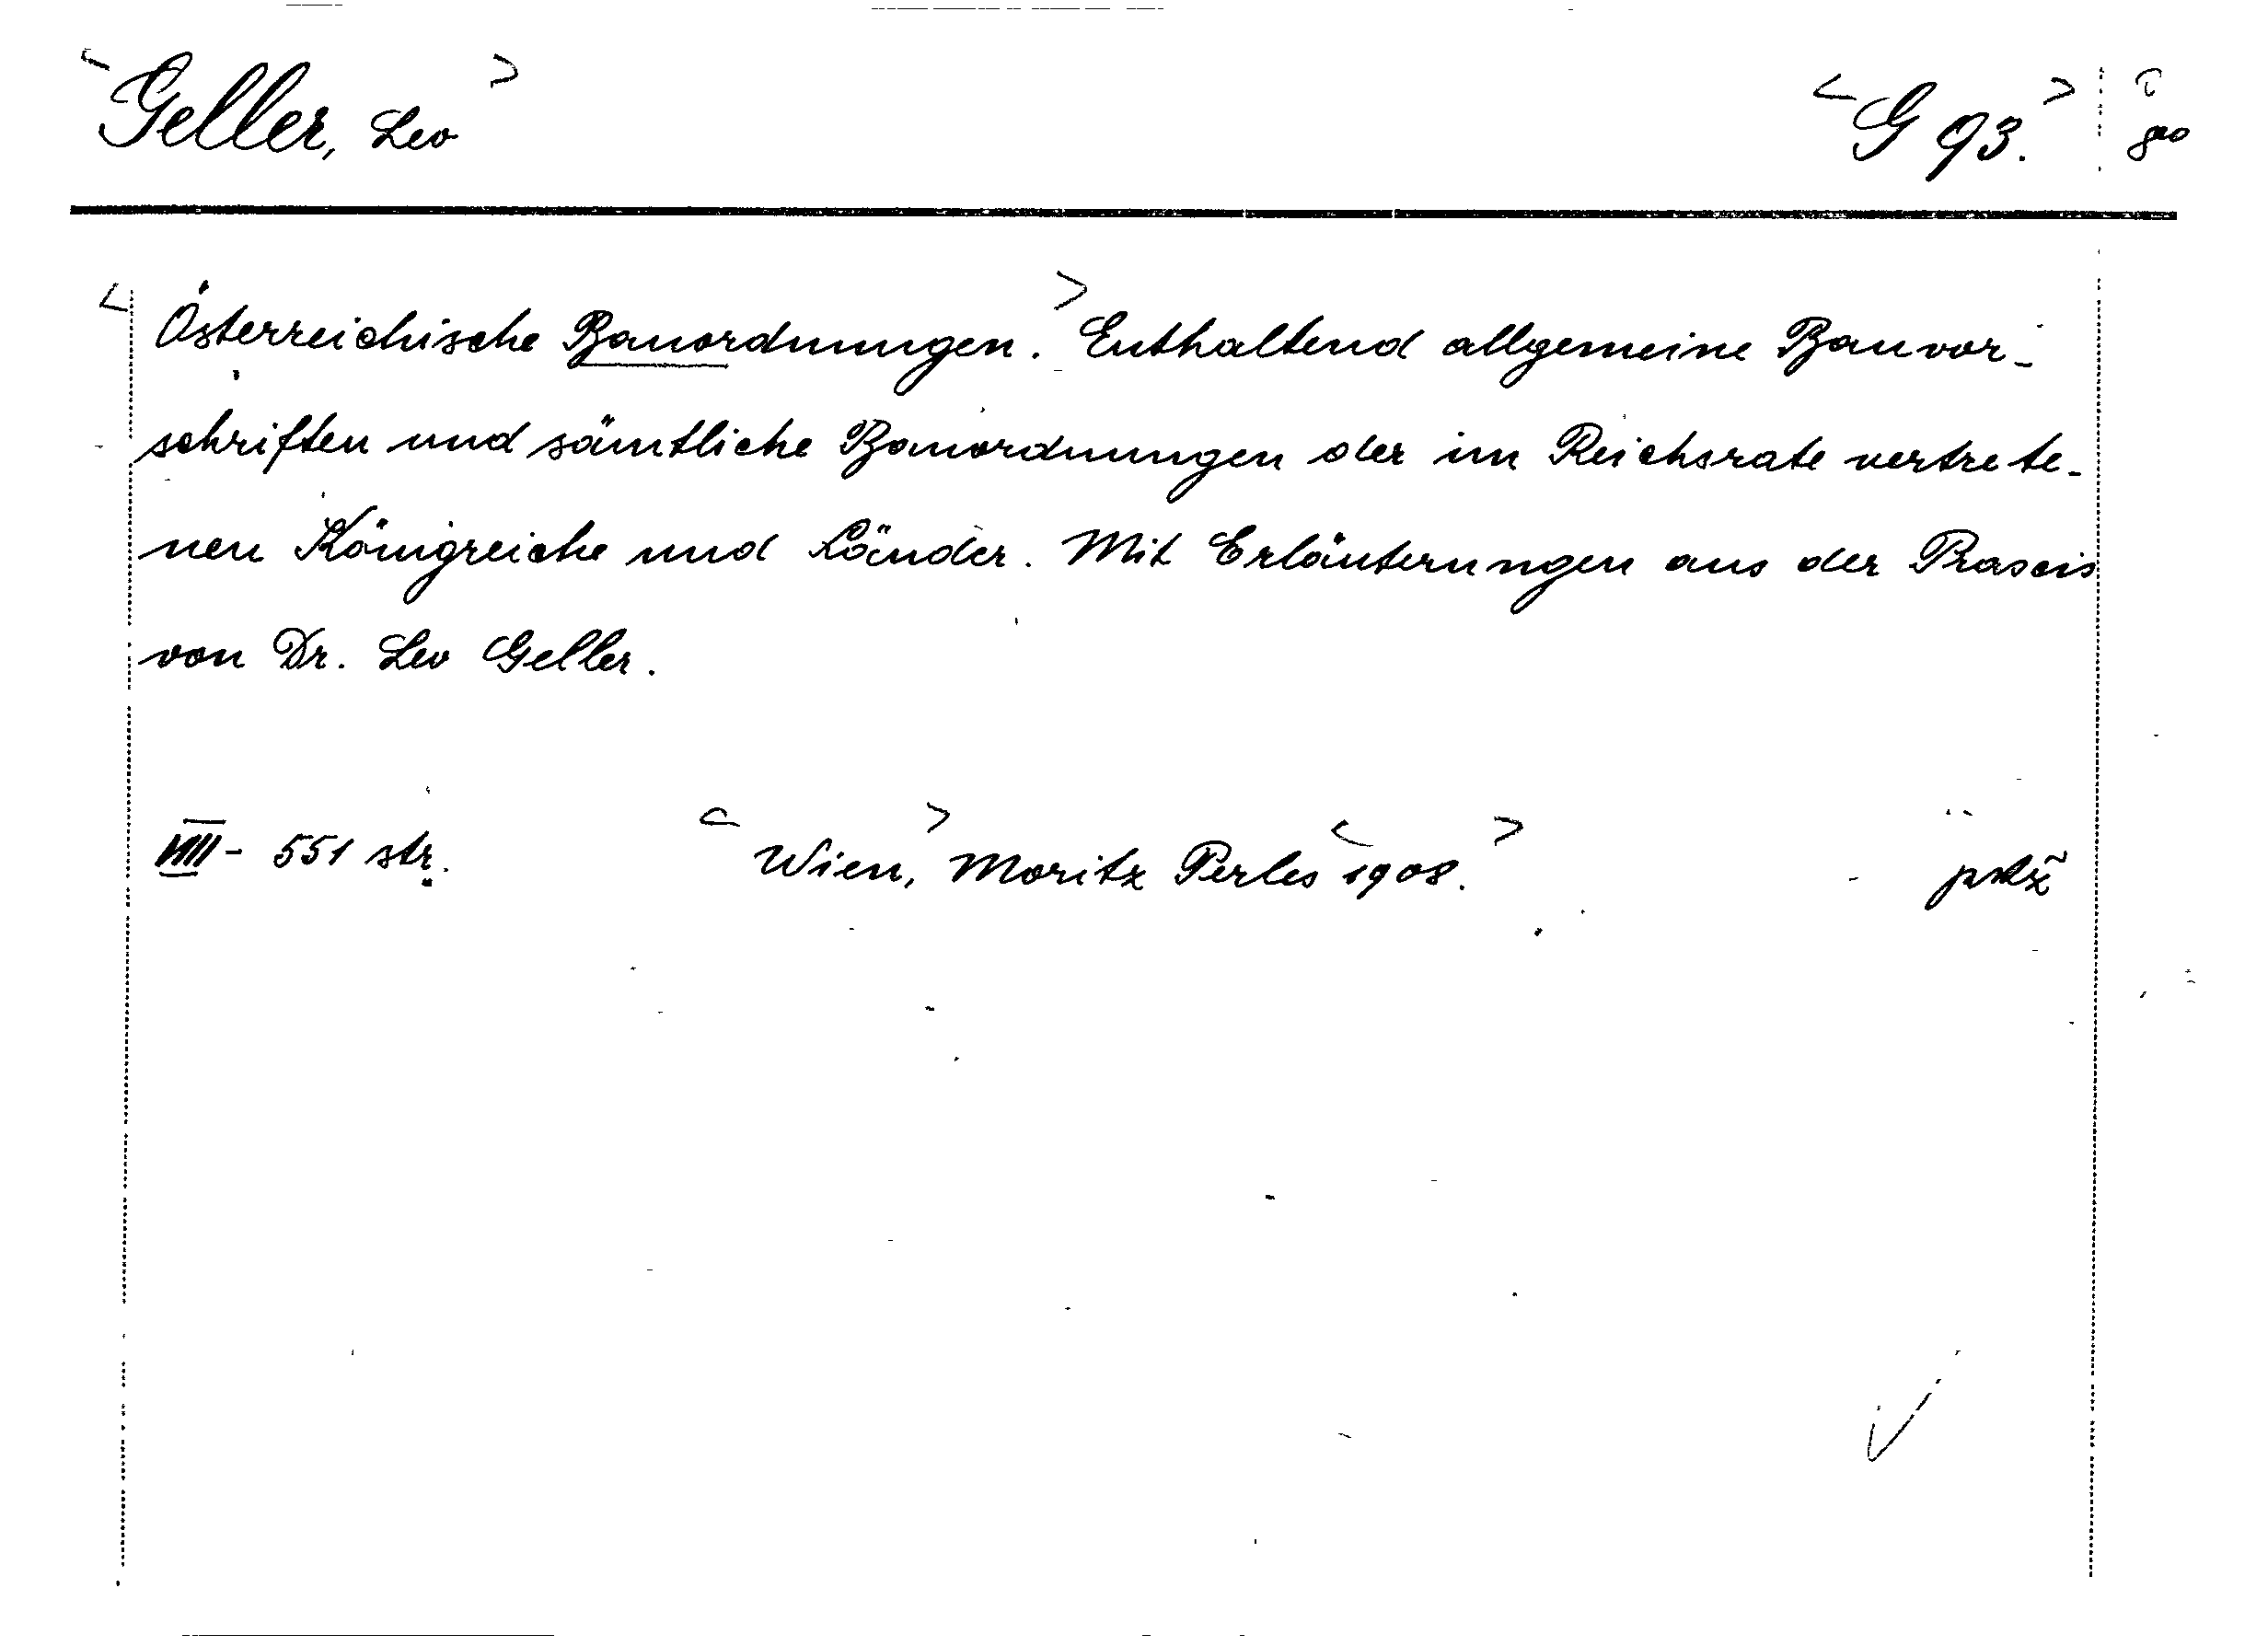 <Geller, Leo> <G 93.>
<Österreichische Bauordnungen.> Enthaltend allgemeine Bauvor-
schriften und sämtliche Bauordnungen der im Reichsrate vertrete-
nen Königreiche und Länder. Mit Erläuterungen aus der Praxis
von Dr. Leo Geller.
VIII - 551 str. <Wien,> Moritz Perles <1908.>